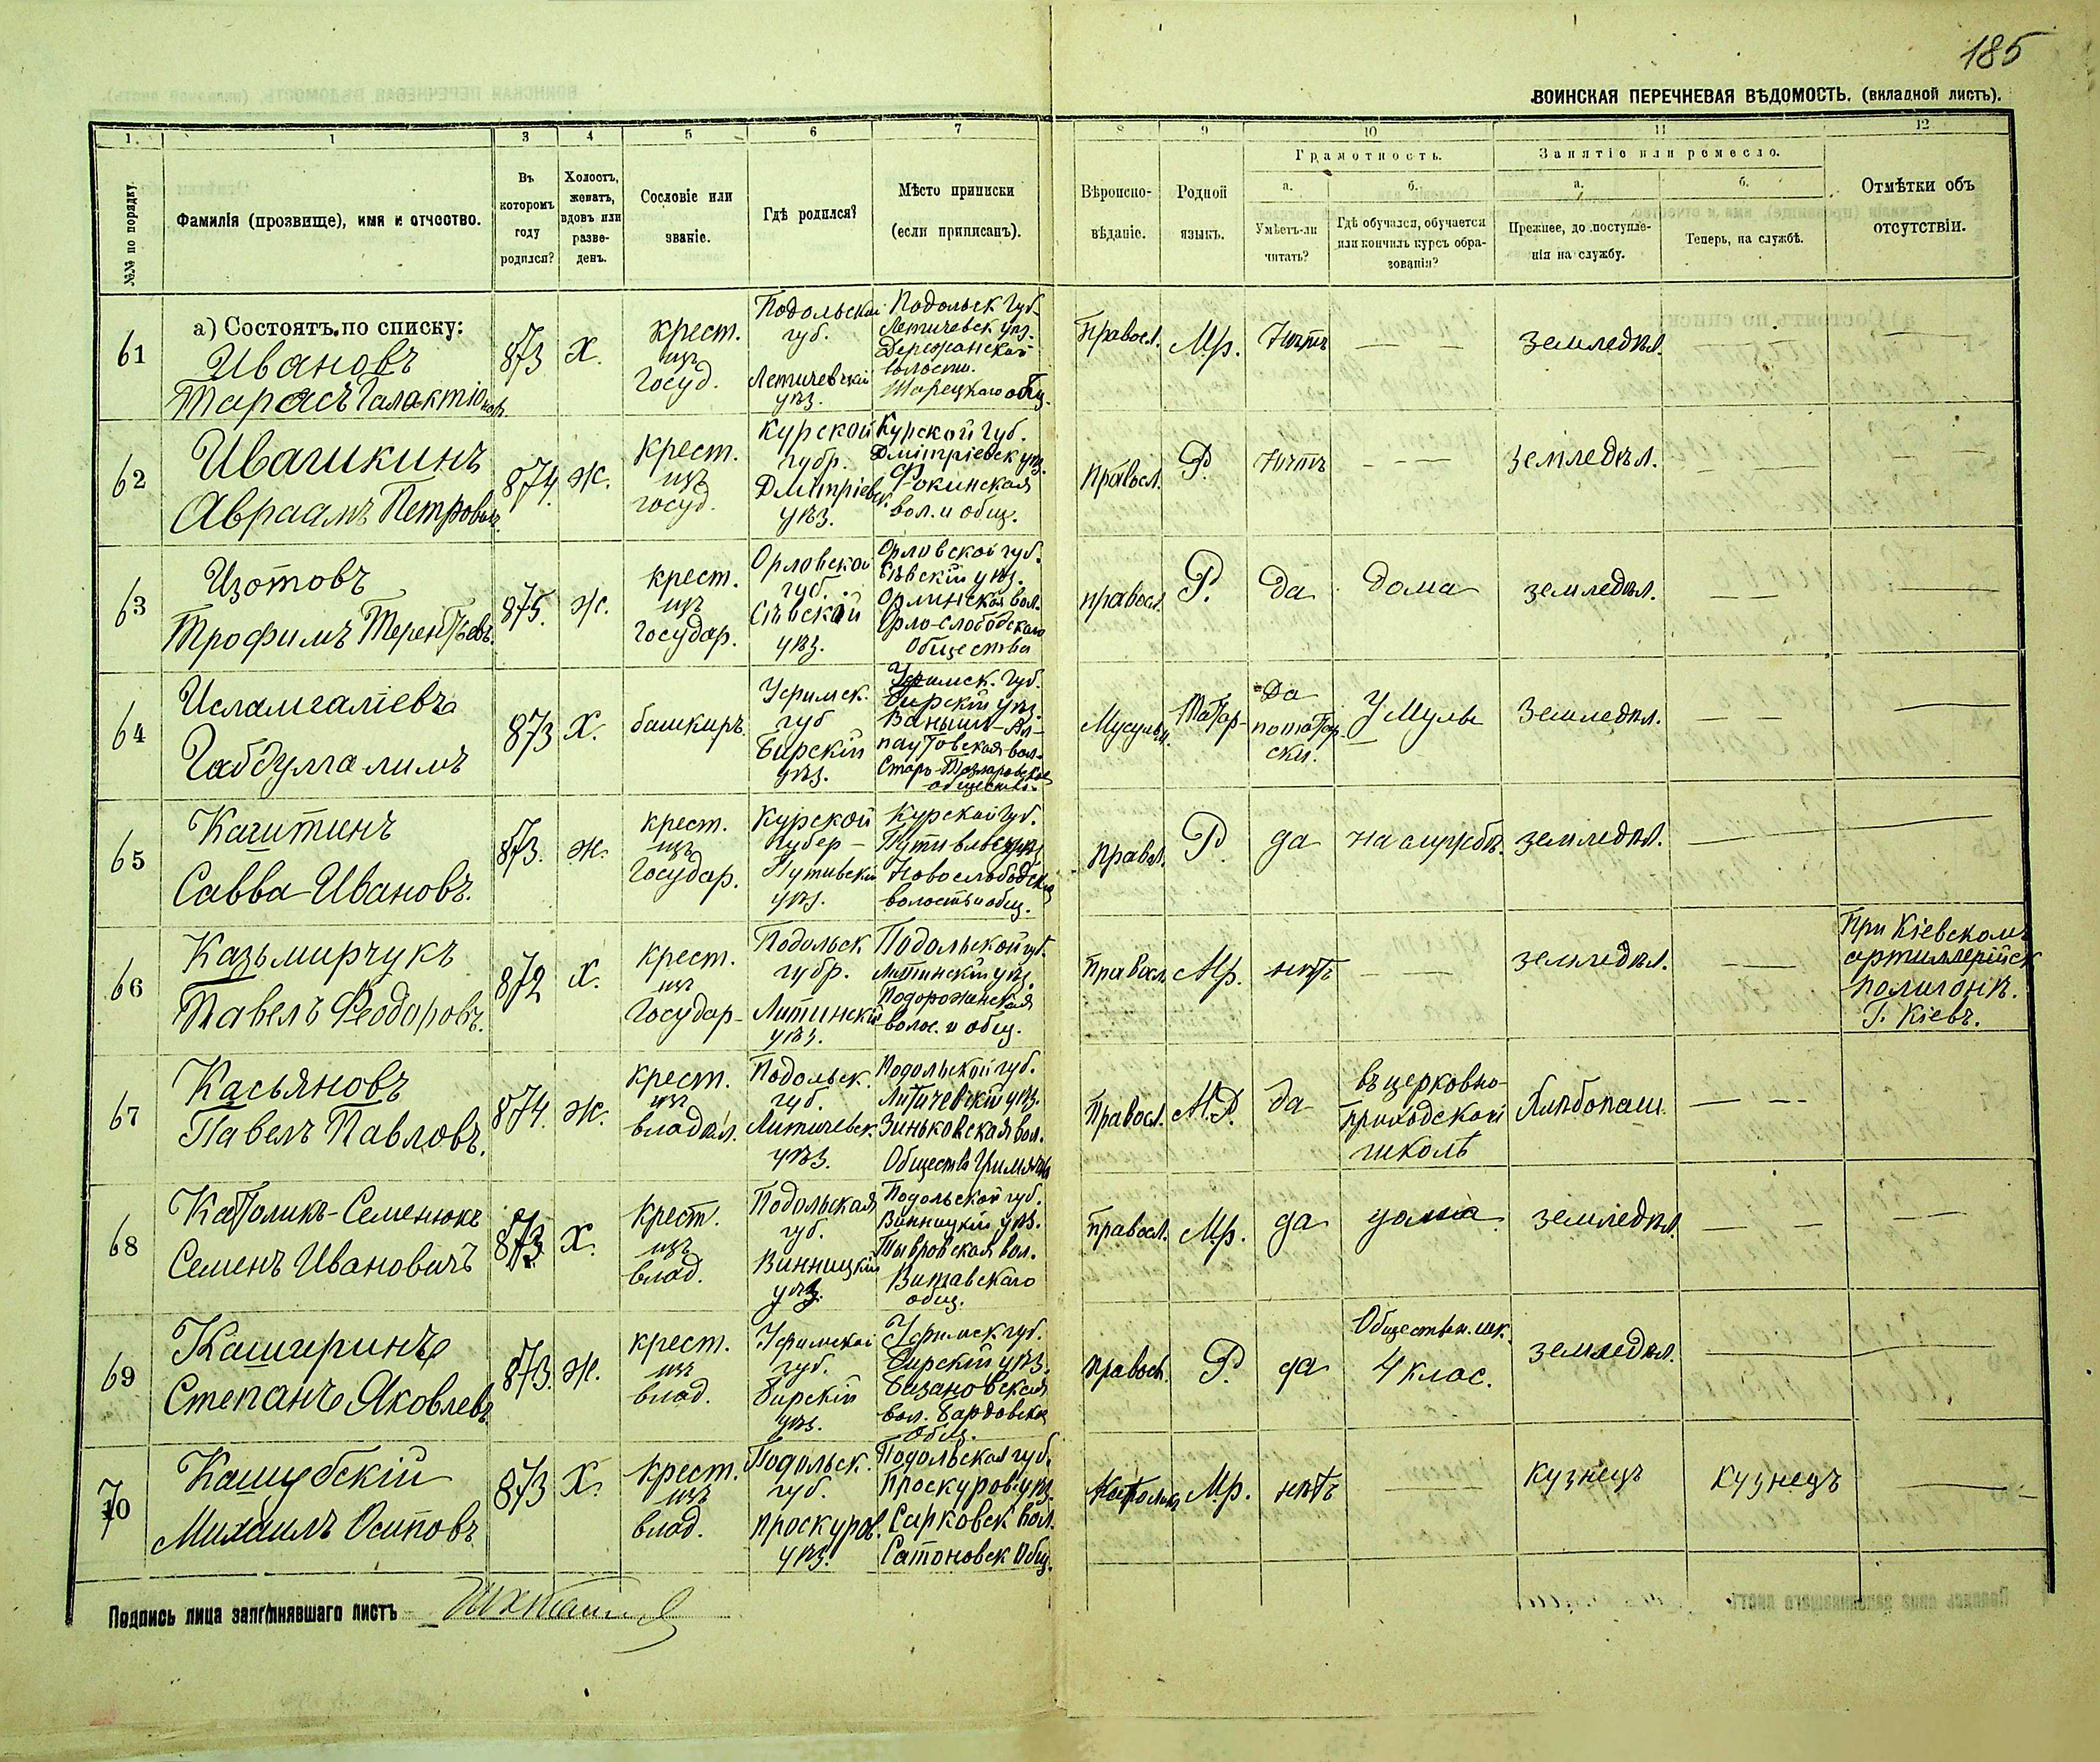 185
ВОИНСКАЯ ПЕРЕЧНЕВАЯ ВѢДОМОСТЬ. (вкладной листъ).
1. 1 3 4 5 6 7 8 9 10 11 12
№№ по порядку.
Фамилія (прозвище), имя и отчество.
Въ которомъ году родился?
Холостъ, женатъ, вдовъ или разведенъ.
Сословіе или званіе.
Гдѣ родился?
Мѣсто приписки (если приписанъ).
Вѣроисповѣданіе.
Родной языкъ.
Грамотность.
а. Умѣетъ-ли читать?
б. Гдѣ обучался, обучается или кончилъ курсъ образованія?
Занятіе или ремесло.
а. Прежнее, до поступленія на службу.
б. Теперь, на службѣ.
Отмѣтки объ отсутствіи.
а) Состоятъ по списку:
61
Ивановъ
Тарасъ Галактіонов.
873
Х.
крест.
изъ
госуд.
Подольской
губ.
Летичевскій
уѣз.
Подольск губ.
Летичевск уѣз.
Деражанской
волости.
общ.
Правосл.
Мр.
Нѣтъ
— —
земледѣл.
—
—
62
Ивашкинъ
Авраамъ Петровичъ.
874.
ж.
крест.
изъ
госуд.
Курской
губр.
Дмітріевск.
уѣз.
Курской губ.
Дмітріевск уѣз.
Фокинская
вол. и общ.
Правосл.
Р.
Нѣтъ
— — —
земледѣл.
— —
— —
63
Изотовъ
Трофимъ Терентьевъ.
875.
ж.
крест.
изъ
государ.
Орловской
губ.
Сѣвской
уѣз.
Орловской губ.
Сѣвскій уѣз.
Орлинская вол.
Орло-слободскаго
Общества
правосл.
Р.
да
дома
земледѣл.
— —
—
64
Исламгаліевъ
Габдулгалимъ
873
Х.
башкиръ.
Уфимск.
губ
Бирскій
уѣз.
Уфимск. губ.
Бирскій уѣз.
Ваныш-Ал-
паутовская вол.
общество.
Мусульм.
Татар-
Да
по татар.
ски.
У Мулы
земледѣл.
— —
—
65
Кашитинъ
Савва Ивановъ.
873.
ж.
крест.
изъ
Государ.
Курской
Губер-
Путивскій
уѣз.
Курской губ.
Путивльскуѣз
Новослободская
волость и общ.
Правосл.
Р.
да
на службѣ.
земледѣл.
—
66
Казьмирчукъ
Павелъ Феодоровъ.
872
Х.
крест.
изъ
Государ-
Подольск
губр.
Литинскій
уѣз.
Подольской губ.
Литинскій уѣз.
волос. и общ.
Правосл.
Мр.
нѣтъ
— —
земледѣл.
—
При Кіевскомъ
артиллерійск
полигонѣ.
Г. Кіевъ.
67
Касьяновъ
Павелъ Павловъ.
874.
ж.
крест.
изъ
владѣл.
Подольск.
губ.
Литичевск.
уѣз.
Подольской губ.
Литичевскій уѣз.
Зиньковская вол.
Правосл.
М.Р.
да
въ церковно-
приходской
школѣ
Хлѣбопаш.
— — —
—
68
Католикъ-Семенюкъ
Семенъ Ивановичъ
873
Х.
Крест.
изъ
влад.
Подольская
губ.
Винницкій
уѣз.
Подольской губ.
Винницкій уѣз.
Тывровская вол.
Витавскаго
общ.
Правосл.
Мр.
да
дома
земледѣл.
— —
—
69
Каширинъ
Степанъ Яковлевъ
873.
ж.
крест.
изъ
влад.
Уфимской
губ.
Бирскій
уѣз.
Уфимск губ.
Бирскій уѣз.
Базановская
вол. Бардовское
Общ.
Правосл.
Р.
да
Обществен. шк.
4 клас.
земледѣл.
—
70
Кашубскій
Михаилъ Осиповъ
873
Х.
Крест.
изъ
влад.
Подольск.
губ.
проскуров.
уѣз.
Подольская губ.
Проскуров. уѣз.
Сарковск вол.
Сатановск Общ.
Католик
Мр.
нѣтъ
—
кузнецъ
кузнецъ
—
Подпись лица заполнявшаго листъ